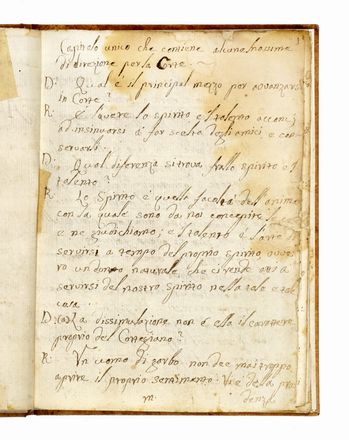 Capitolo unico che contiene alcune Massime
di direzione per la Corte
D: Qual è il principal mezzo per avanzarsi
in Corte?
R: È l'avere lo spirito e 'l talento acconci
ad insinuarsi a far scelta degli amici, e con
servarli.
D: Qual diferenza si trova frallo spirito e 'l
talento?
R: Lo Spirito è quella facoltà dell'anima
con la quale sono da noi concepite le
e ne giudichiamo; e 'l talento è l'arte di
servirsi a tempo del proprio spirito, ovve
ro un dono naturale che ci rende atti a
servirsi del nostro spirito nella tale e tal
cosa.
D: La dissimulazione non è ella il carattere
proprio del Cortegiano?
R: Un uomo di garbo non dee mai troppo
aprire il proprio sentimento. Vi è della pru
denza